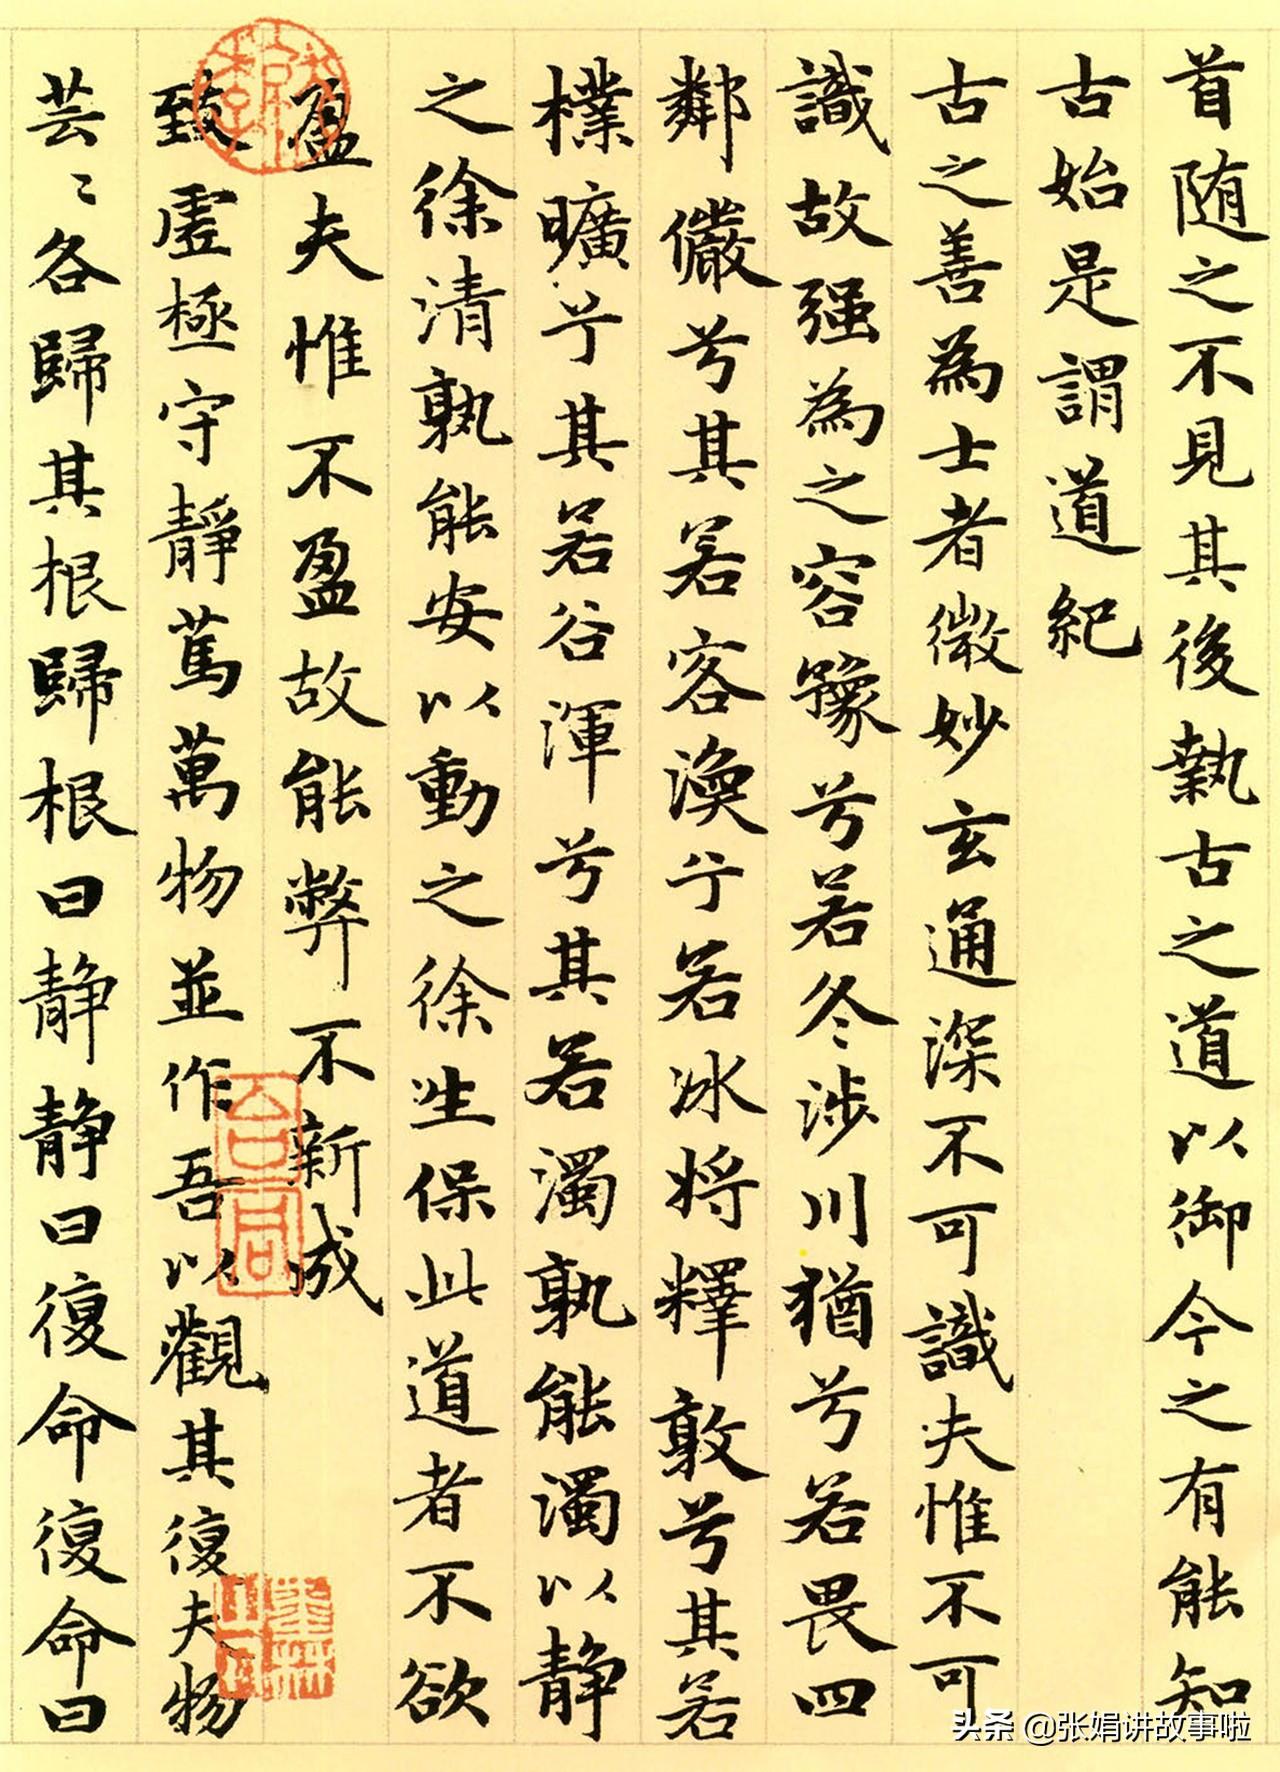 首随之不見其後執古之道以御今之有能知
古始是謂道紀
古之善為士者微妙玄通深不可識夫惟不可
識故强為之容豫兮若冬涉川猶兮若畏四
鄰儼兮其若客渙兮若冰將釋敦兮其若
樸曠兮其若谷渾兮其若濁孰能濁以静
之徐清孰能安以動之徐生保此道者不欲
盈夫惟不盈故能弊不新成
致虚極守靜篤萬物並作吾以觀其復夫物
芸〻各歸其根歸根曰静静曰復命復命曰
头条 @张娟讲故事啦